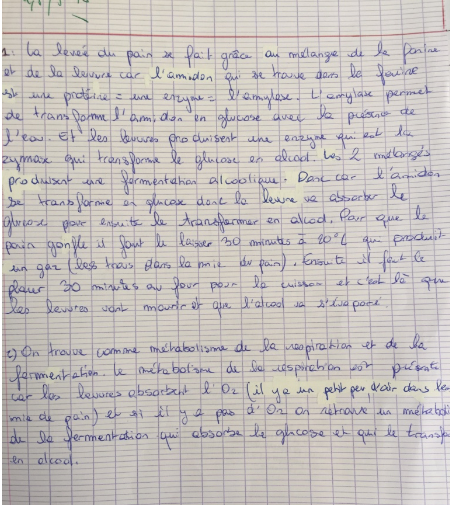 1. La levée du pain se fait grâce au mélange de la farine
et de la levure car l'amidon qui se trouve dans la farine
est une protéine = une enzyme = l'amylase. L'amylase permet
de transforme l'amidon en glucose avec la présence de
l'eau. Et les levures produisent une enzyme qui est la
zymase qui transforme le glucose en alcool. Les 2 mélangés
produisent une fermentation alcoolique. Donc car l'amidon
se transforme en glucose donc la levure va absorber le
glucose pour ensuite le transformer en alcool. Pour que le
pain gonfle il faut le laisser 30 minutes à 20°C qui produit
un gaz (les trous dans la mie du pain). Ensuite il faut le
placer 30 minutes au four pour la cuisson et c'est là que
les levures vont mourir et que l'alcool va s'évaporé.
2) On trouve comme métabolisme de la respiration et de la
fermentation. Le métabolisme de la respiration est présente
car les levures absorbent l'O2 (il y a un petit peu d'air dans la
mie de pain) et si il y a pas d'O2 on retrouve un métaboli
de la fermentation qui absorbe le glucose et qui le transfo
en alcool.